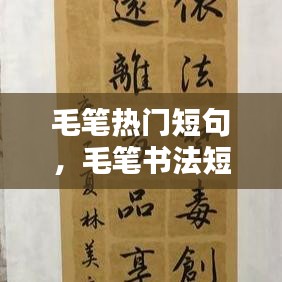 依法毒創
遠離品享
夏林美
毛笔热门短句
，毛笔书法短